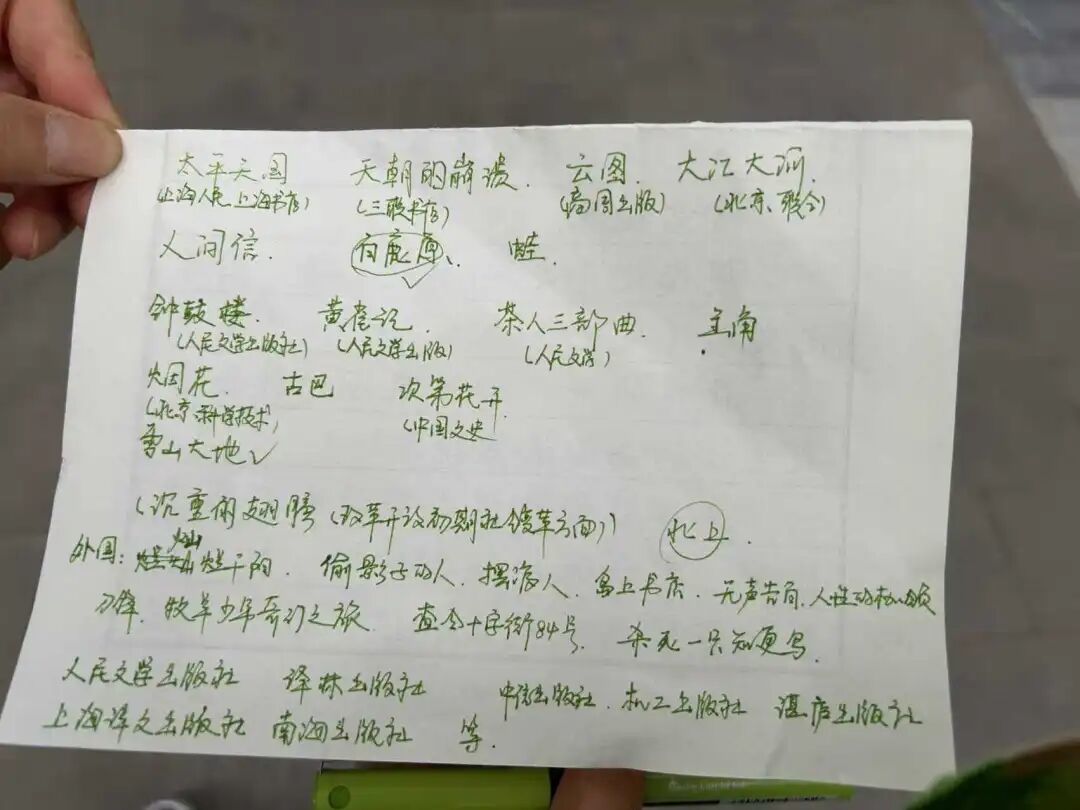 太平天国 天朝的崩溃. 云图. 大江大河.
(上海人民、上海书店) (三联书店) (商周出版) (北京、联合)
人间信. 白鹿原、 蛙.
钟鼓楼. 黄雀记. 茶人三部曲. 主角
(人民文学出版社) (人民文学出版) (人民文学)
烟花. 古巴 次第花开.
(北京科学技术) (中国文史
雪山大地✓
(沉重的翅膀 (改革开放初期社 变革方面)) 北上.
外国: 灿烂千阳. 偷影子的人. 摆渡人. 岛上书店. 无声告白. 人性的枷锁
刀锋. 牧羊少年奇幻之旅. 查令十字街84号. 杀死一只知更鸟.
人民文学出版社 译林出版社 中信出版社. 机工出版社 湛庐出版社
上海译文出版社 南海出版社 等.